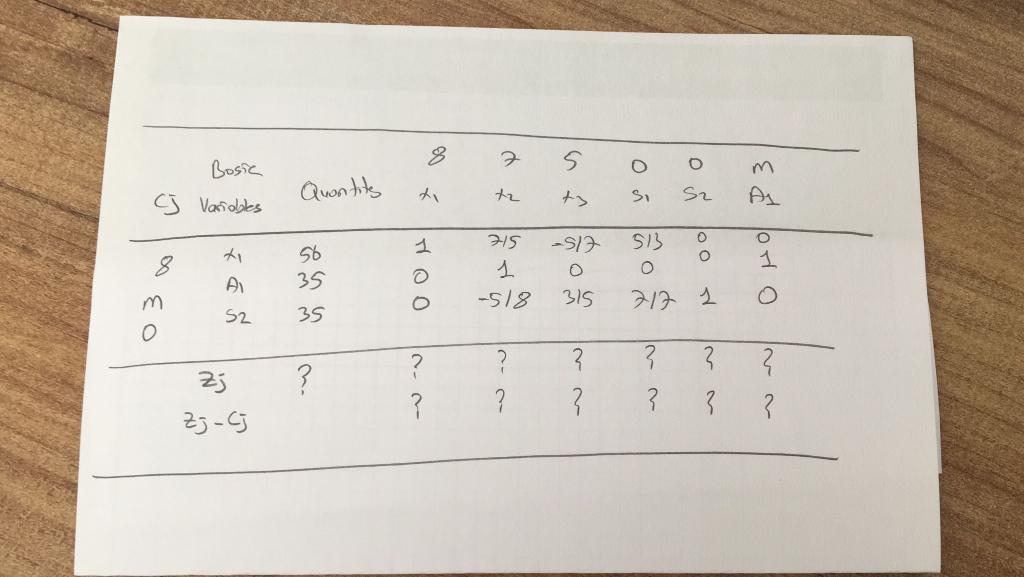 8 7 5 0 0 m
Cj Basic Variables Quantity x1 x2 x3 s1 s2 A1
8 x1 56 1 7/5 -5/7 5/3 0 0
m A1 35 0 1 0 0 0 1
0 s2 35 0 -5/8 3/5 7/7 1 0
Zj ? ? ? ? ? ? ?
Zj-Cj ? ? ? ? ? ?